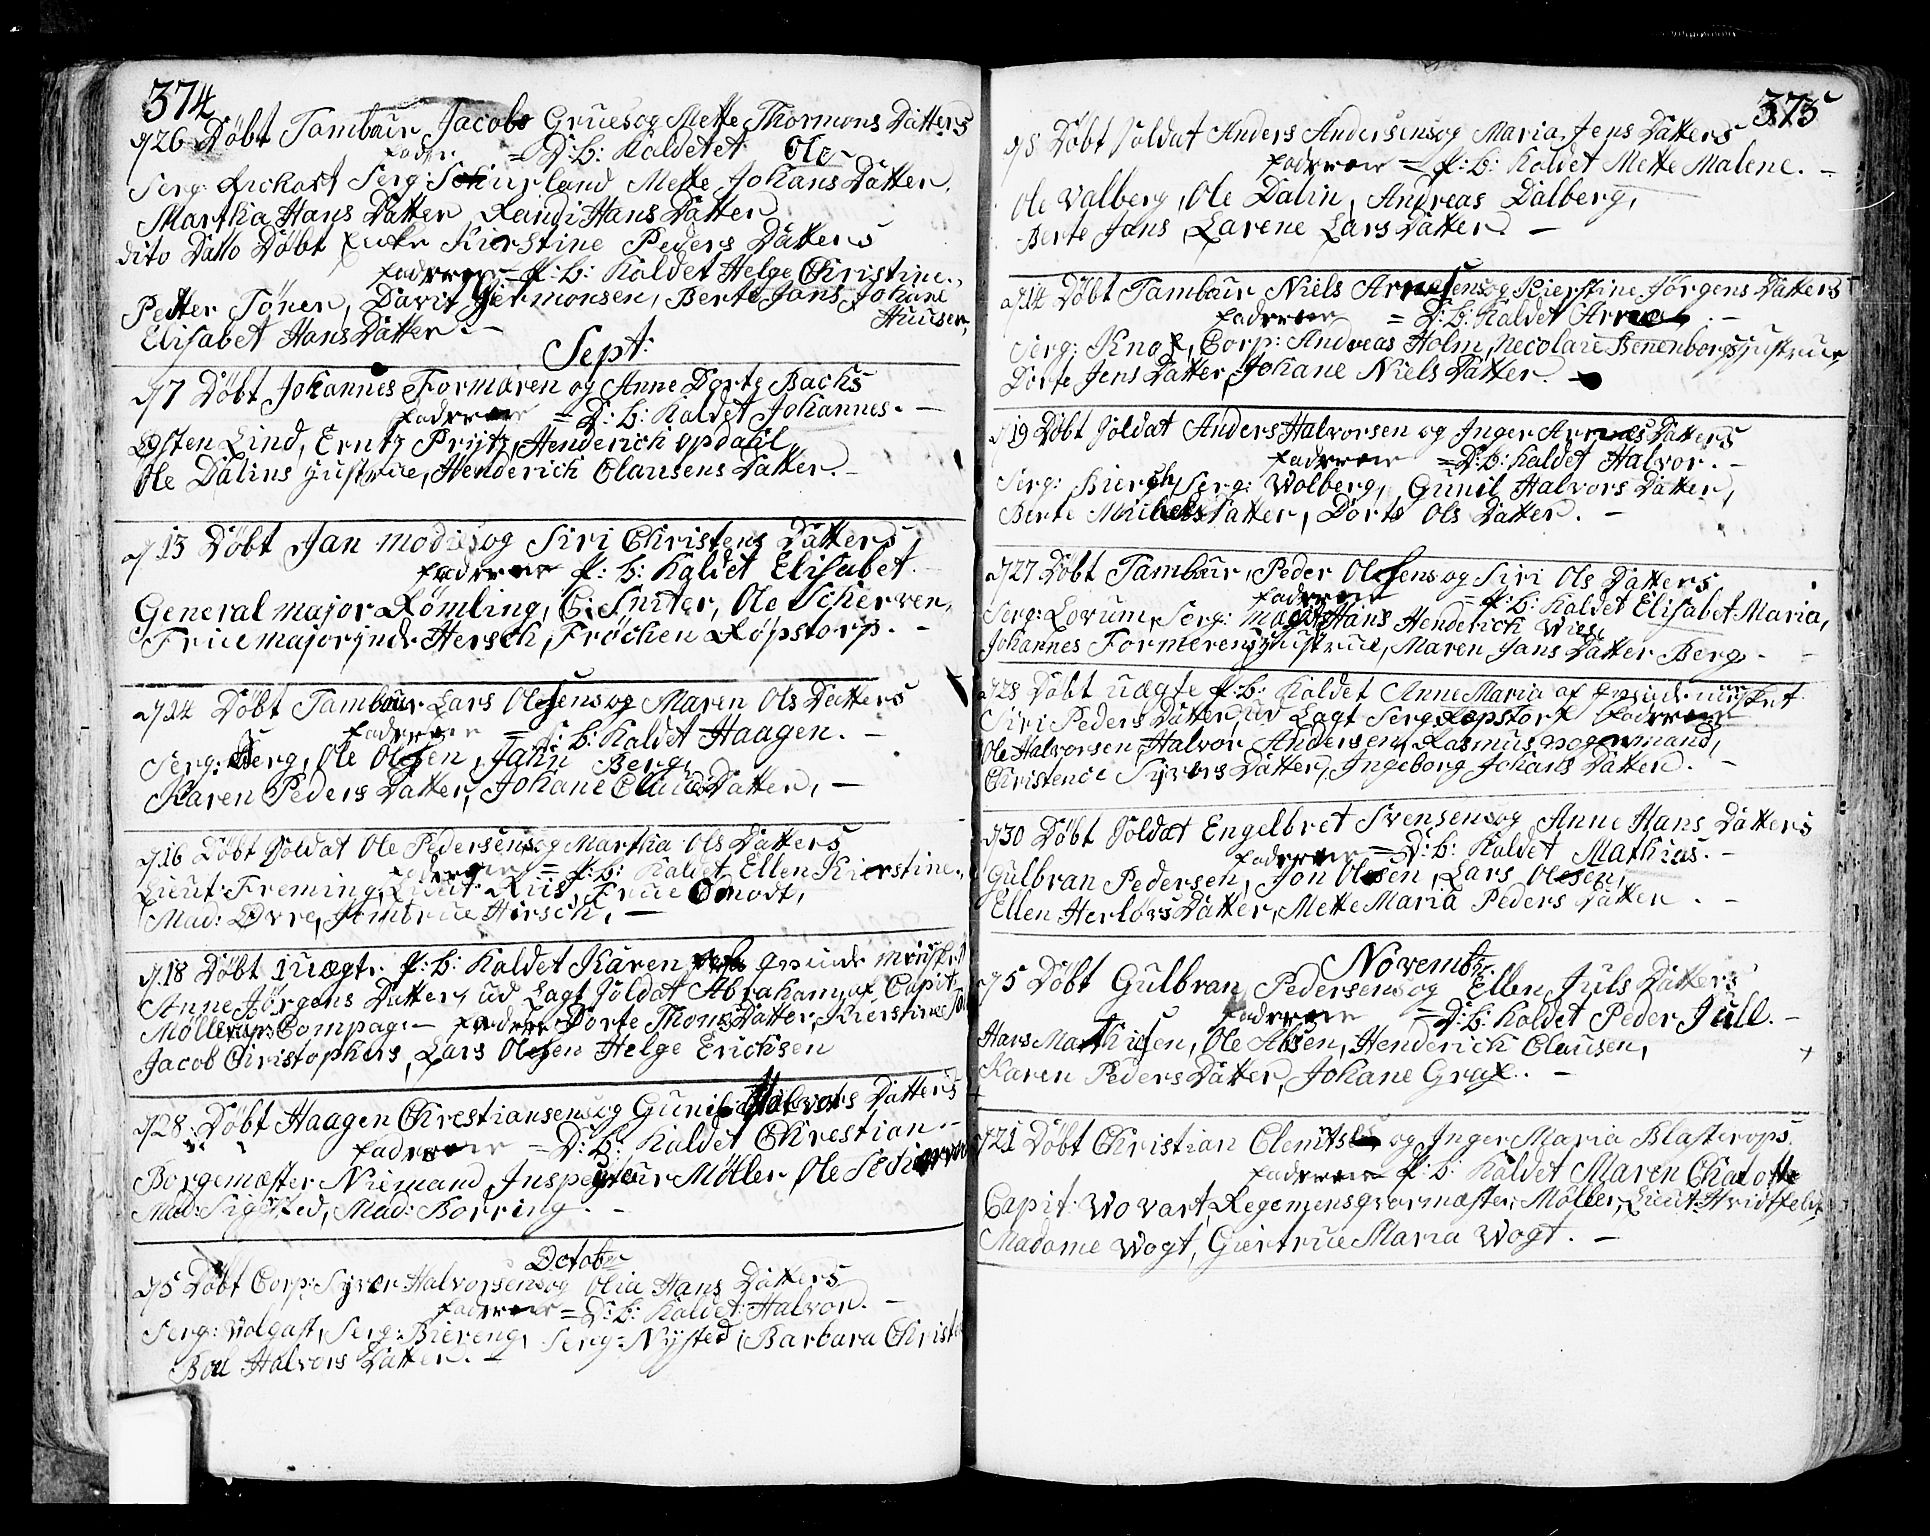 374
d 26 Døbt Tambour Jacobs Grues og Mette Thormons Datters
D: b: Kaldetet Ole
Serg: Serg: Schurland Mette Johans Datter,
Martha Hans Datter Randi Hans Datter
dito Datto Døbt Kierstine Peders Datters
Fadderne = P: b: Kaldet Helge Christine.,
Petter Töner, David Germonsen, Berte Jans Johane
Huuser,
Elisabet Hans Datter. —
Sept:
d 7 Døbt Johannes Formæren og Anne Dorte Bachs
Fadderne = D: b: Kaldet Johannes. —
Østen Lind, Erntz Prijtz, Henderich opdahl,
Ole Dalins Justrue, Henderich Clausens Datter. —
d 13 Døbt Jan Modies og Siri Christens Datters
Fadderne P: b: Kaldet Elisabet.
General major Rømling, C: Sniter, Ole Scherven,
Frue majorinde Hersch, Frøchen Røpstorp. —
d 14 Døbt Tambour Lars Olesens og Maren Ols Datters
Fadderne = D: b: Kaldet Haagen. —
Serg: Berg, Ole Olesen, Jahn Berg,
Karen Peders Datter, Johane Claus Datter, —
d 16 Døbt Soldat Ole Pedersens og Martha Ols Datters
Fadderne = P: b: Kaldet Ellen Kierstine.,
Lieut: Freming, Lieut: Riis, Frue Omodt,
Mad: Øvre, Jomfrue Hirsch, —
d 18 Døbt 1 uægte P: b: Kaldet Karen
Anne Jørgens Datter, ud Lagt Soldat Abraham, af Capit:
Møllerups Compag: — Fadderne Dorte Thoms Datter, Kierstine
Jacob Christophers, Lars Olesen Helge Erichsen
d 28 Døbt Haagen Chrestiansens og Gunil Halvors Datters
Fadderne = D: b: Kaldet Chrestian —
Borgemæster Niemand, Inspecteur Møller, Ole Scherven
Mad: Sigsted, Mad: Borring. —
October
d 5 Døbt Corp: Syver Halvorsens og Olia Hans Datters
Fadderne = D: b: Kaldet Halvor. —
Serg: Volgast, Serg: Biereng, Serg: Nysted, Barbara Christ
Boel Halvors Datter. —
375
d 5 Døbt Soldat Anders Andersens og Maria Jens Datters
Fadderne = P: b: Kaldet Mette Malene. —
Ole Valberg, Ole Dalin, Andreas Dalberg,
Berte Jans, Larene Lars Datter. —
d 14 Døbt Tambour Niels Arnesens og Kierstine Jørgens Datters
Fadderne = D: b: Kaldet Arne. —
Serg: Knox, Corp: Andreas Holm, Necolaie Benenborgs Justrue,
Dorte Jens Datter, Johane Niels Datter. —
d 19 Døbt Soldat Anders Halvorsen og Inger Arnes Datters
Fadderne = D: b: Kaldet Halvor. —
Serg: Hiersch, Serg: Wolberg, Gunil Halvors Datter,
Berte Michels Datter, Dorte Ols Datter. —
d 27 Døbt Tambour, Peder Olesens og Siri Ols Datters
Fadderne = P: b: Kaldet Elisabet Maria,
Serg: Lorum, Serg: Hans Henderich Wies,
Johannes Formerens Justrue, Maren Jans Datter Berg. —
d 28 Døbt uægte P: b: Kaldet Anne Maria af
Siri Peders Datter, ud Lagt Serg: Røpstorf Fadderne
Ole Halvorsen, Halvor Andersen, Rasmus
Christence Syvers Datter, Ingeborg Johans Datter. —
d 30 Døbt Soldat Engelbret Svensens og Anne Hans Datters
Fadderne = D: b: Kaldet Mathias. —
Gulbran Pedersen, Jon Olesen, Lars Olesen,
Ellen Herlovs Datter, Mette Maria Peders Datter. —
Novembr.
d 5 Døbt Gulbran Pedersens og Ellen Juls Datters
Fadderne = D: b: Kaldet Peder Jull. —
Hans Mathiesen, Ole Alsen, Henderich Clausen,
Karen Peders Datter, Johane Grax. —
d 21 Døbt Christian Clemtsens og Inger Maria Blasterops
Fadderne P: b: Kaldet Maren Chalotte
Capit: Wovart, Regemensqvarmæster Møller, Lieut: Hvidtfeldt,
Madame Wogt, Giertrue Maria Wogt. —